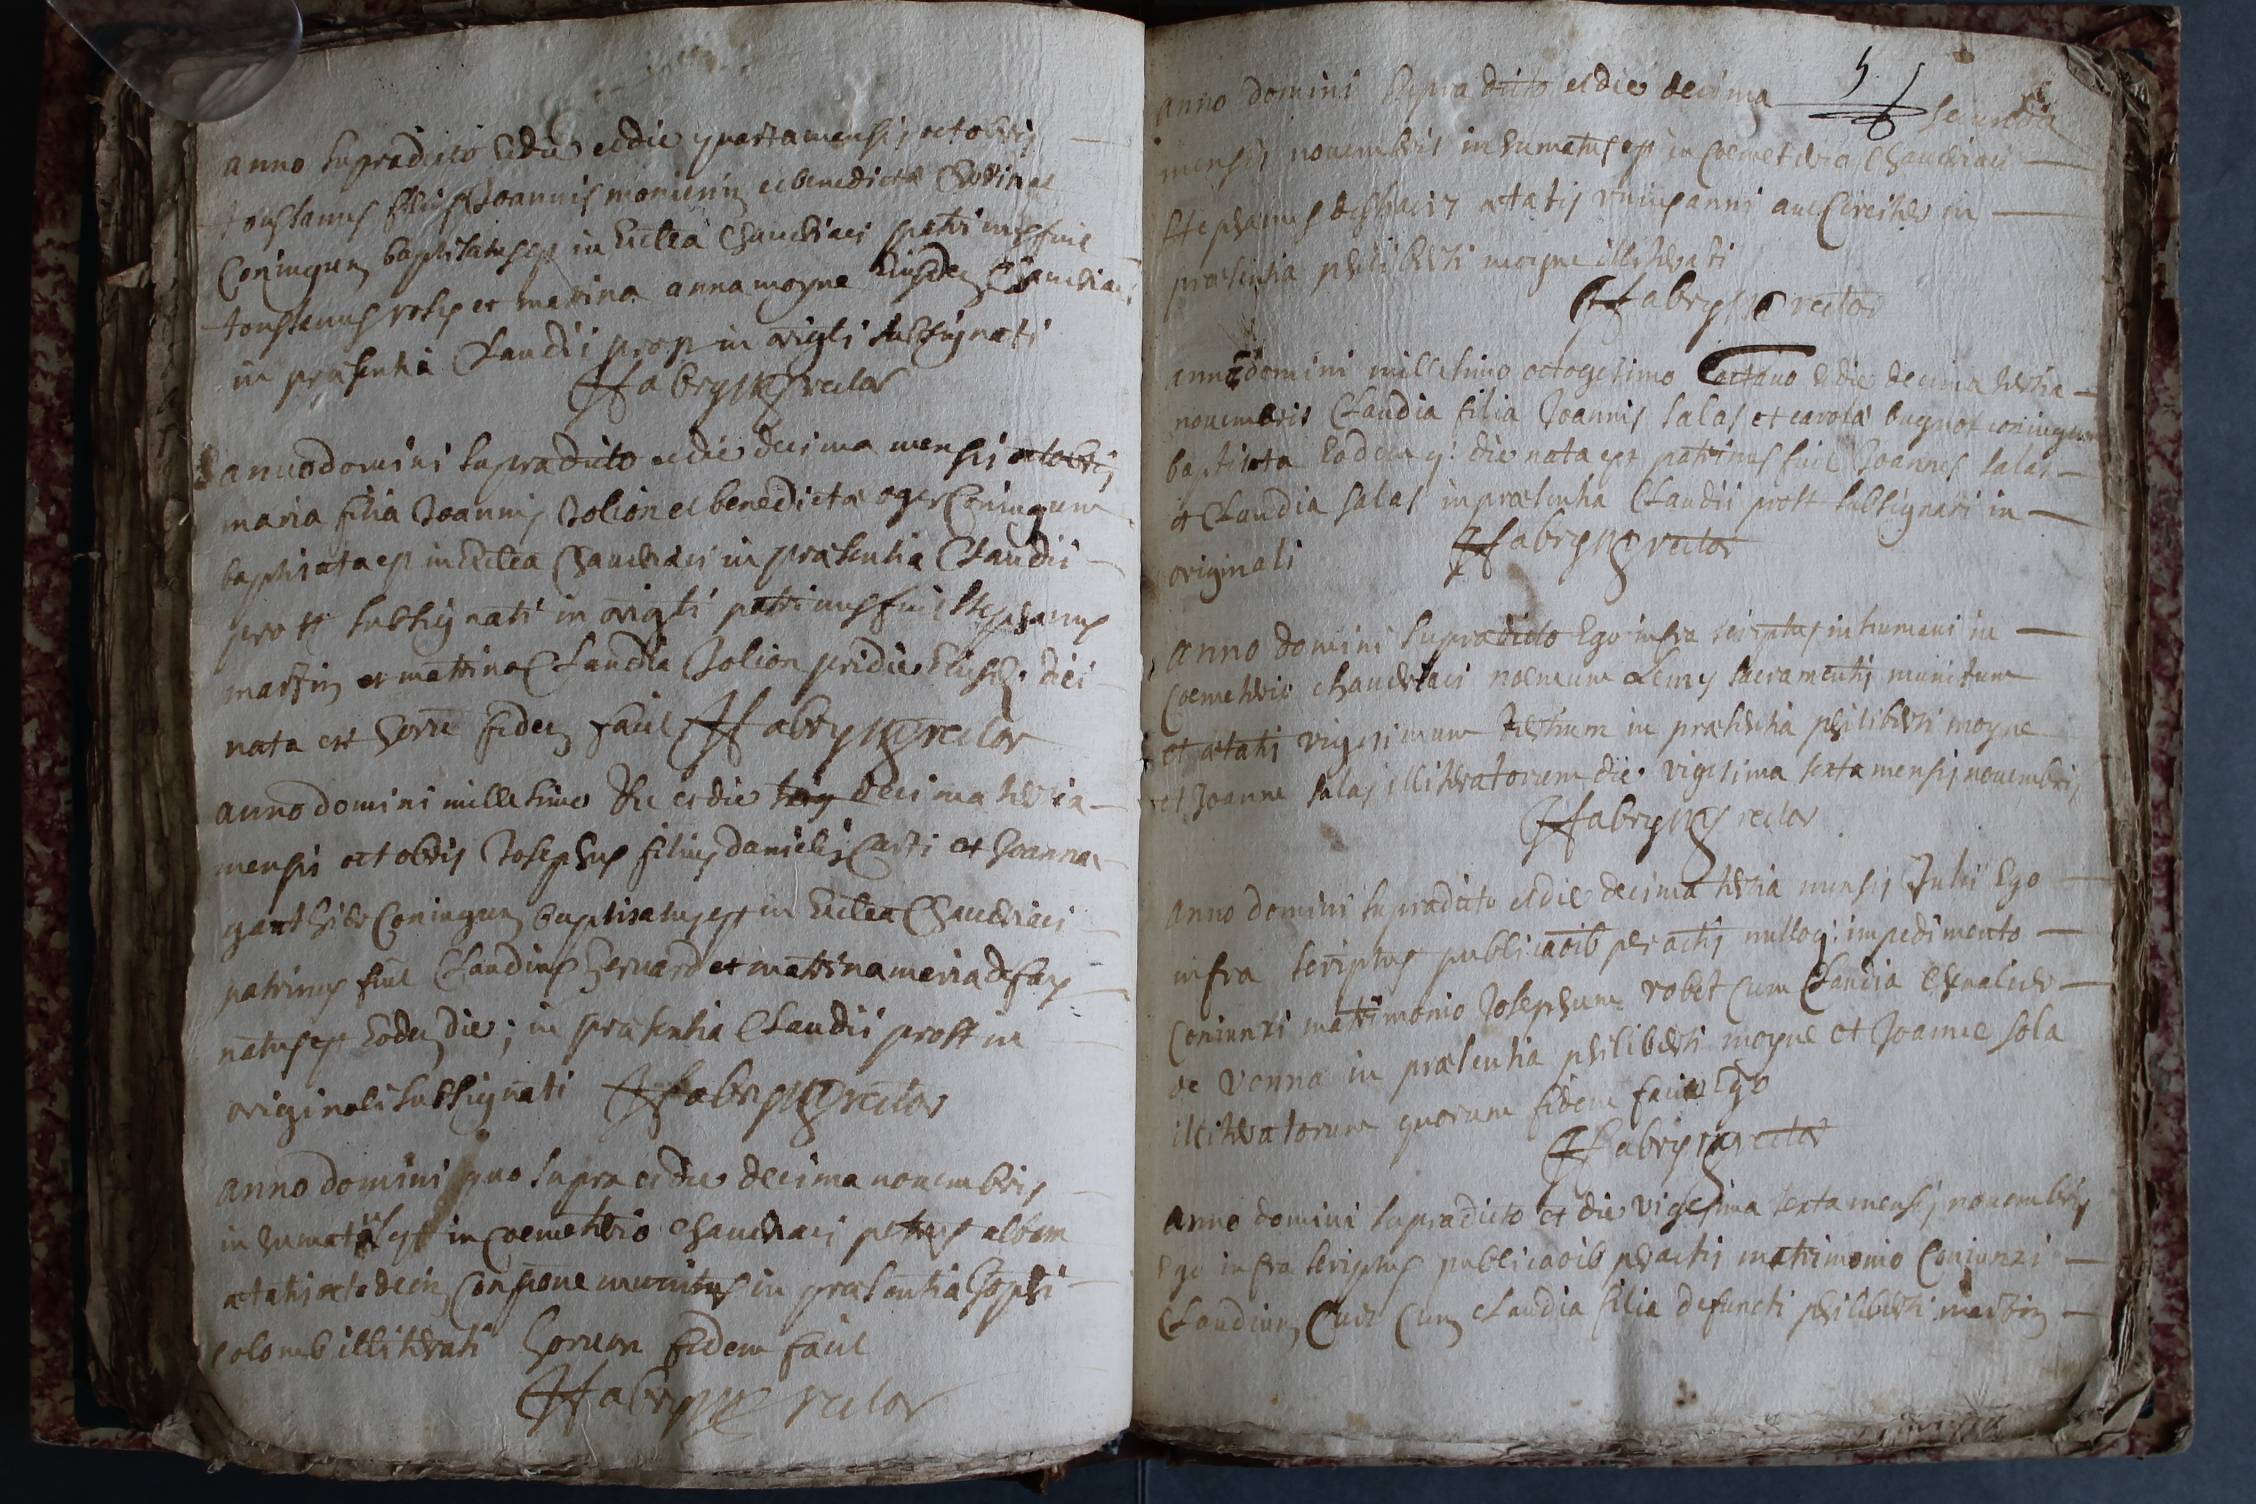 anno supradicto et die quarta mensis octobris
filius Joannis monierin et benedictæ
Coniugum baptisatus est in Ecclea Chaudriaci patrinus fuit
et matrina anna moyne
in præsentia Claudii prost in origli subsignati
Fabry rector
anno domini supradicto et die decima mensis octobris
maria filia Joannis Jolion et benedictæ oger Coniugum
baptisata est in Ecclea Chaudriaci in præsentia Claudii
prost subsignati in origli patrinus fuit stephanus
martin et matrina Claudia Jolion pridie die
nata est horu fidem facit Fabry rector
anno domini millesimo et die decima tertia
mensis octobris Josephus filius danielis et Joannæ
Coniugum baptisatus est in Ecclea Chaudriaci
patrinus fuit Claudius bernard et matrina maria
natus est Eode die; in præsentia Claudii prost in
originali subsignati Fabry rector
anno domini quo supra et die decima nouembris
in humatus est in Coemeterio chaudriaci petrus
ætatis octodecim in præsentia
colomb illiterati horum fidem facit
Fabry rector
5
anno domini supra dicto et die decima secunda
mensis nouembris in humatus est in Coemeterio Chaudriaci
Stephanus ætatis unius anni aut Circiter in
præsentia philiberti moyne illiterati
Fabry rector
anno domini millesimo octogesimo octauo et die decima tertia
nouembris Claudia filia Joannis salas et carola bugnot coniugum
baptisata Eodem q; die nata est patrinus fuit Joannes salas
et Claudia salas in præsentia Claudii prost subsignati in
originali Fabry rector
anno domini supradicto Ego infra scriptus inhumaui in
Coemeterio chaudriaci sacramentis munitum
et ætatis vigesimum in præsentia philiberti moyne
et Joanne salas illiteratorum die vigesima sexta mensis nouembris
Fabry rector
anno domini supradicto et die decima tertia mensis Julii Ego
infra scriptus publicaoib peractis nulloq; impedimento
Coniunxi matrimonio Josephum robet Cum Claudia
de Venna in præsentia philiberti moyne et Joanne sola
illiteratorum quorum fidem facio Ego
Fabry rector
anno domini supradicto et die vigesima sexta mensis nouembris
Ego infra scriptus publicaoib peractis matrimonio Coniunxi
Claudium Cum claudia filia defuncti philiberti martin